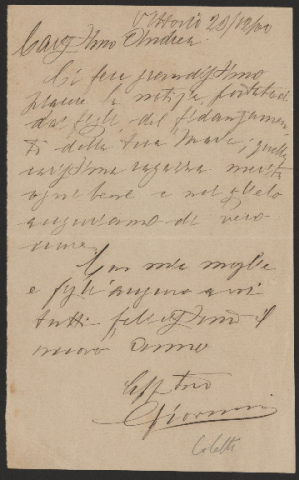 Vittorio 29/12/00
Cariss̃imo Andrea
Ci fece grandissimo
piacere la notizia portataci
dai figli del fidanzamen-
to della tua Maria; quella
carissima ragazza merita
ogni bene e noi glielo
auguriamo di vero
cuore
Con mia moglie
e figli auguro a voi
tutti felicissimo il
nuovo anno
Aff tuo
Giovanni
Coletti